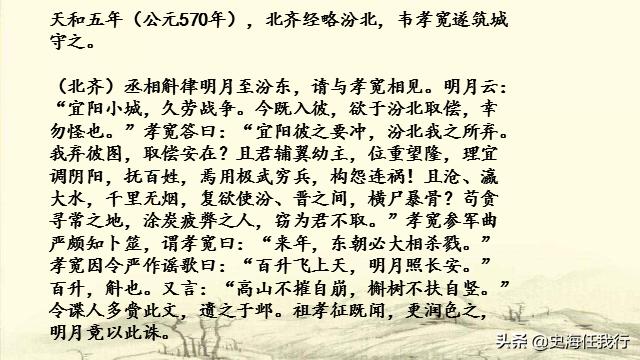 天和五年（公元570年），北齐经略汾北，韦孝宽遂筑城
守之。
（北齐）丞相斛律明月至汾东，请与孝宽相见。明月云：
“宜阳小城，久劳战争。今既入彼，欲于汾北取偿，幸
勿怪也。”孝宽答曰：“宜阳彼之要冲，汾北我之所弃。
我弃彼图，取偿安在？且君辅翼幼主，位重望隆，理宜
调阴阳，抚百姓，焉用极武穷兵，构怨连祸！且沧、瀛
大水，千里无烟，复欲使汾、晋之间，横尸暴骨？苟贪
寻常之地，涂炭疲弊之人，窃为君不取。”孝宽参军曲
严颇知卜筮，谓孝宽曰：“来年，东朝必大相杀戮。”
孝宽因令严作谣歌曰：“百升飞上天，明月照长安。”
百升，斛也。又言：“高山不摧自崩，槲树不扶自竖。”
令谍人多赍此文，遗之于邺。祖孝征既闻，更润色之，
明月竟以此诛。
头条 @史海任我行